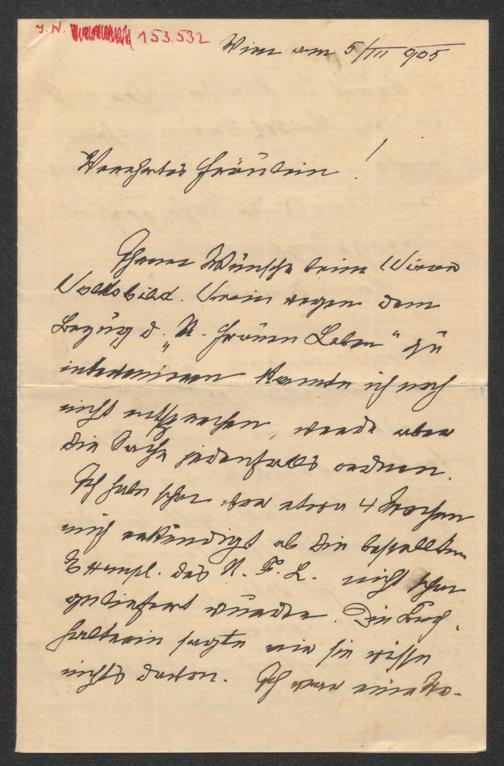 J. N. 153.532
Wien am 5/III 905
Verehrtes Fräulein!
Ihrem Wunsche beim Wiener
Volksbild. Verein wegen dem
Bezug d. „N. Frauen Leben“ zu
intervenieren konnte ich noch
nicht entsprechen, werde aber
die Sache jedenfalls ordnen.
Ich habe schon vor etwa 4 Wochen
mich erkundigt ob die bestellten
Exempl. des N. F. L. nicht schon
geliefert wurden. Die Buch-
halterin sagte mir sie wisse
nichts davon. Ich war eine Wo-